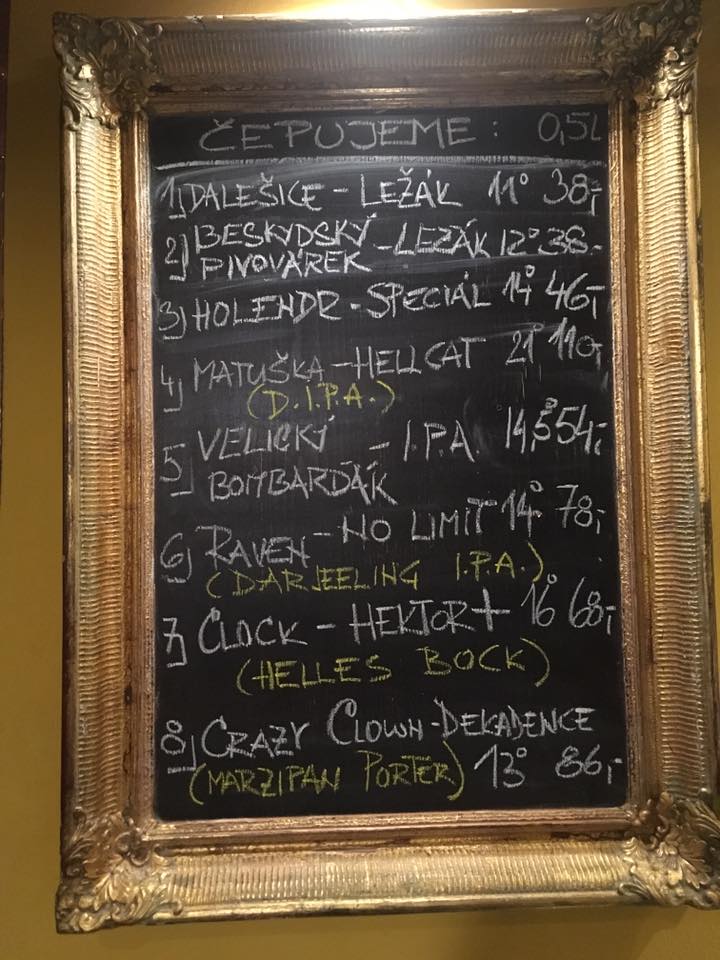 ČEPUJEME: 0,5l
1) DALEŠICE - LEŽÁK 11° 38,-
2) BESKYDSKÝ PIVOVÁREK - LEZÁK 12° 38.-
3) HOLENDR - SPECIÁL 14° 46,-
4) MATUŠKA - HELLCAT 21° 110,-
(D.I.P.A.)
5) VELICKÝ BOMBARĎÁK - I.P.A. 14,5° 54,-
6) RAVEN - NO LIMIT 14° 78,-
(DARJEELING I.P.A.)
7) CLOCK - HEKTOR + 16° 68,-
(HELLES BOCK)
8) CRAZY CLOWN - DEKADENCE
(MARZIPAN PORTER) 13° 86,-